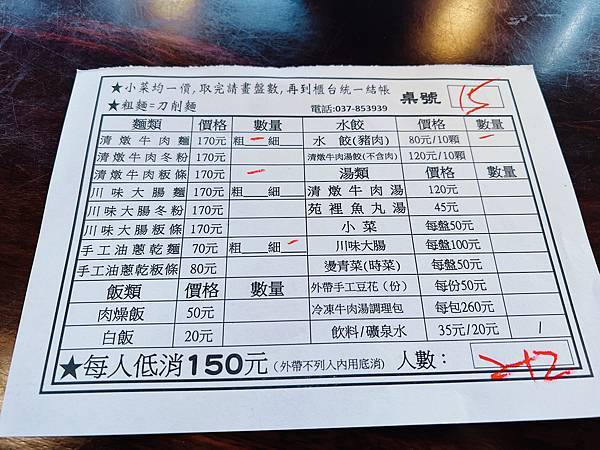 ★小菜均一價,取完請畫盤數,再到櫃台統一結帳
★粗麵=刀削麵 電話:037-853939 桌號 15
麵類 價格 數量 水餃 價格 數量
清燉牛肉麵 170元 粗 一 細 水 餃(豬肉) 80元/10顆 一
清燉牛肉冬粉 170元 清燉牛肉湯餃(不含肉) 120元/10顆
清燉牛肉粄條 170元 一 湯類 價格 數量
川味大腸麵 170元 粗___細___ 清燉牛肉湯 120元
川味大腸冬粉 170元 苑裡魚丸湯 45元
川味大腸粄條 170元 小菜 每盤50元
手工油蔥乾麵 70元 粗___細 一 川味大腸 每盤100元
手工油蔥乾粄條 80元 燙青菜(時菜) 每盤50元
飯類 價格 數量 外帶手工豆花(份) 每份50元
肉燥飯 50元 冷凍牛肉湯調理包 每包260元
白飯 20元 飲料/礦泉水 35元/20元 /
★每人低消150元(外帶不列入內用底消) 人數: 2+2